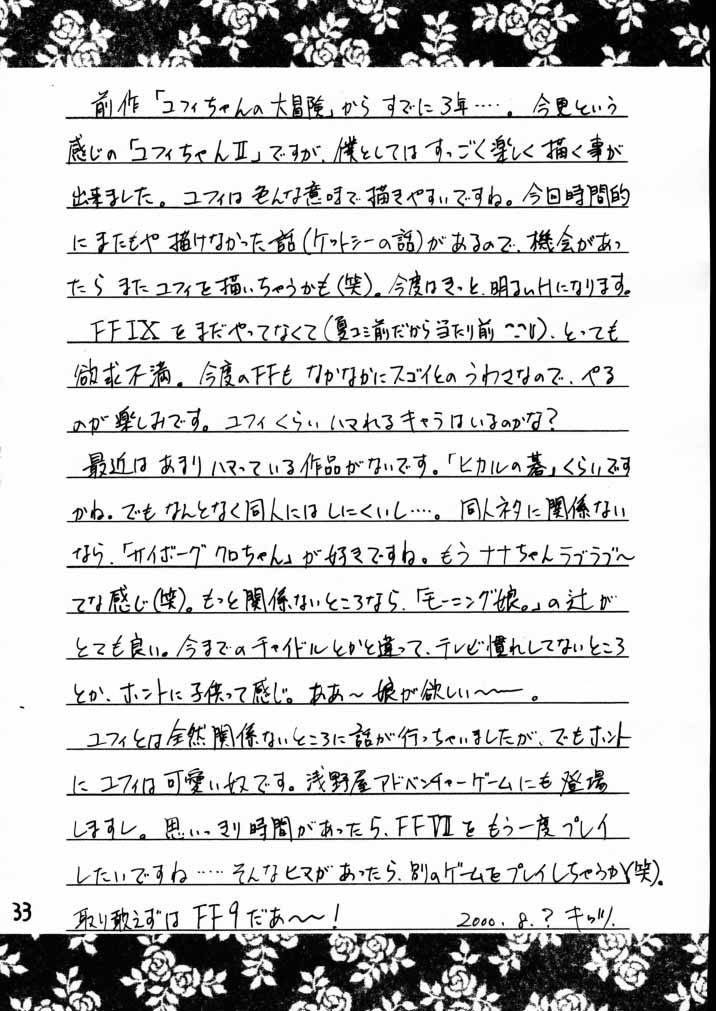 前作「ユフィちゃんの大冒険」からすでに3年‥‥。今更という
感じの「ユフィちゃんⅡ」ですが、僕としてはすっごく楽しく描く事が
出来ました。ユフィは色んな意味で描きやすいですね。今回時間的
にまたもや描けなかった話(ケットシーの話)があるので、機会があっ
たらまたユフィを描いちゃうかも(笑)。今度はきっと、明るいHになります。
FFⅨをまだやってなくて(夏コミ前だから当たり前^^;)、とっても
欲求不満。今度のFFもなかなかにスゴイとのうわさなので、やる
のが楽しみです。ユフィくらいハマれるキャラはいるのかな?
最近はあまりハマっている作品がないです。「ヒカルの碁」くらいです
かね。でもなんとなく同人にはしにくいし‥‥。同人ネタに関係ない
なら、「サイボーグクロちゃん」が好きですね。もうナナちゃんラブラブ〜
てな感じ(笑)。もっと関係ないところなら、「モーニング娘。」の辻が
とても良い。今までのチャイドルとかと違って、テレビ慣れしてないところ
とか、ホントに子供って感じ。ああ〜娘が欲しい〜ー。
ユフィとは全然関係ないところに話が行っちゃいましたが、でもホント
にユフィは可愛い奴です。浅野屋アドベンチャーゲームにも登場
しますし。思いっきり時間があったら、FFⅦをもう一度プレイ
したいですね‥‥そんなヒマがあったら、別のゲームをプレイしちゃうか(笑)。
取り敢えずはFF9だあ〜〜!
2000.8.? キッツ
33